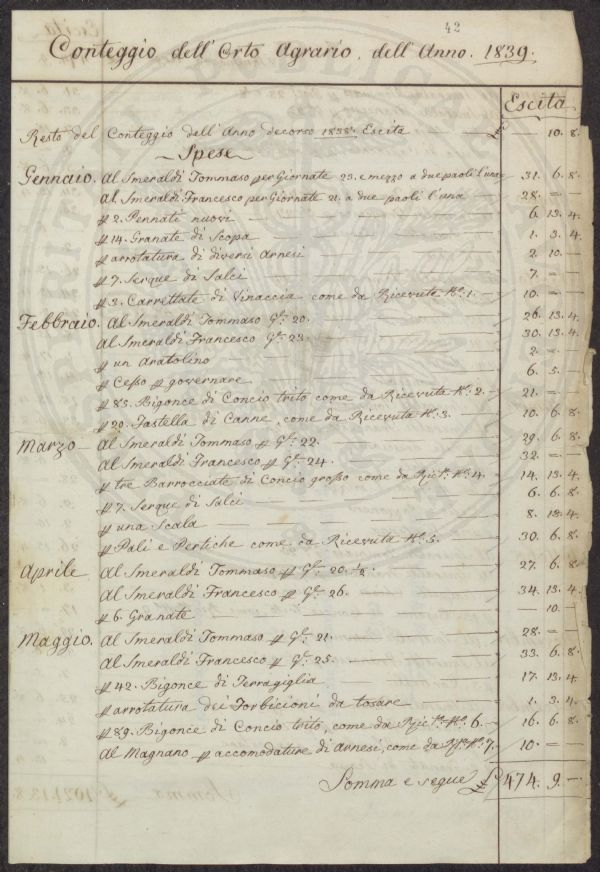 42
Conteggio dell'Orto Agrario, dell'Anno. 1839.
Escita
Resto del Conteggio dell'Anno decorso 1838. Escita — 10. 8.
Spese
Gennaio. Al Smeraldi Tommaso per Giornate 23. e mezzo a due paoli l'una 31. 6. 8.
Al Smeraldi Francesco per Giornate 21. a due paoli l'una 28. =
p 2. Pennati nuovi 6. 13. 4.
p 14. Granate di Scopa 1. 3. 4
p arrotatura di diversi Arnesi 2. 10. -
p 7. Serque di Salci 7. =
p 3. Carrettate di Vinaccia come da Ricevuta No. 1. 10. =
Febbraio. Al Smeraldi Tommaso Ge. 20. 26. 13. 4.
Al Smeraldi Francesco Ge. 23. 30. 13. 4.
p un Aratolino 2. =
p Cesso p governare 6. 5.
p 85. Bigonce di Concio trito come da Ricevuta No. 2. 21. =
p 20. Fastella di Canne, come da Ricevuta No. 3. 10. 6. 8.
Marzo Al Smeraldi Tommaso p Ge. 22. 29. 6. 8.
Al Smeraldi Francesco p Ge. 24. 32. =
p tre Barrocciate di Concio grosso come da Ric. No. 4. 14. 13. 4
p 7. Serque di Salci 6. 6. 8.
p una Scala 8. 13. 4.
p Pali e Pertiche come da Ricevuta No. 5. 30. 6. 8.
Aprile Al Smeraldi Tommaso p Ge. 20. 1/2. 27. 6. 8.
Al Smeraldi Francesco p Ge. 26. 34. 13. 4
p 6. Granate — 10. -
Maggio. Al Smeraldi Tommaso p Ge. 21. 28. =
Al Smeraldi Francesco p Ge. 25. 33. 6. 8.
p 42. Bigonce di Terragiglia 17. 13. 4
p arrotatura dei Forbicioni da tosare 1. 3. 4.
p 89. Bigonce di Concio trito, come da Ric. No. 6. 16. 6. 8.
Al Magnano p accomodature di Arnesi, come da Ric. No. 7. 10. =
Somma e segue £ 474. 9. -